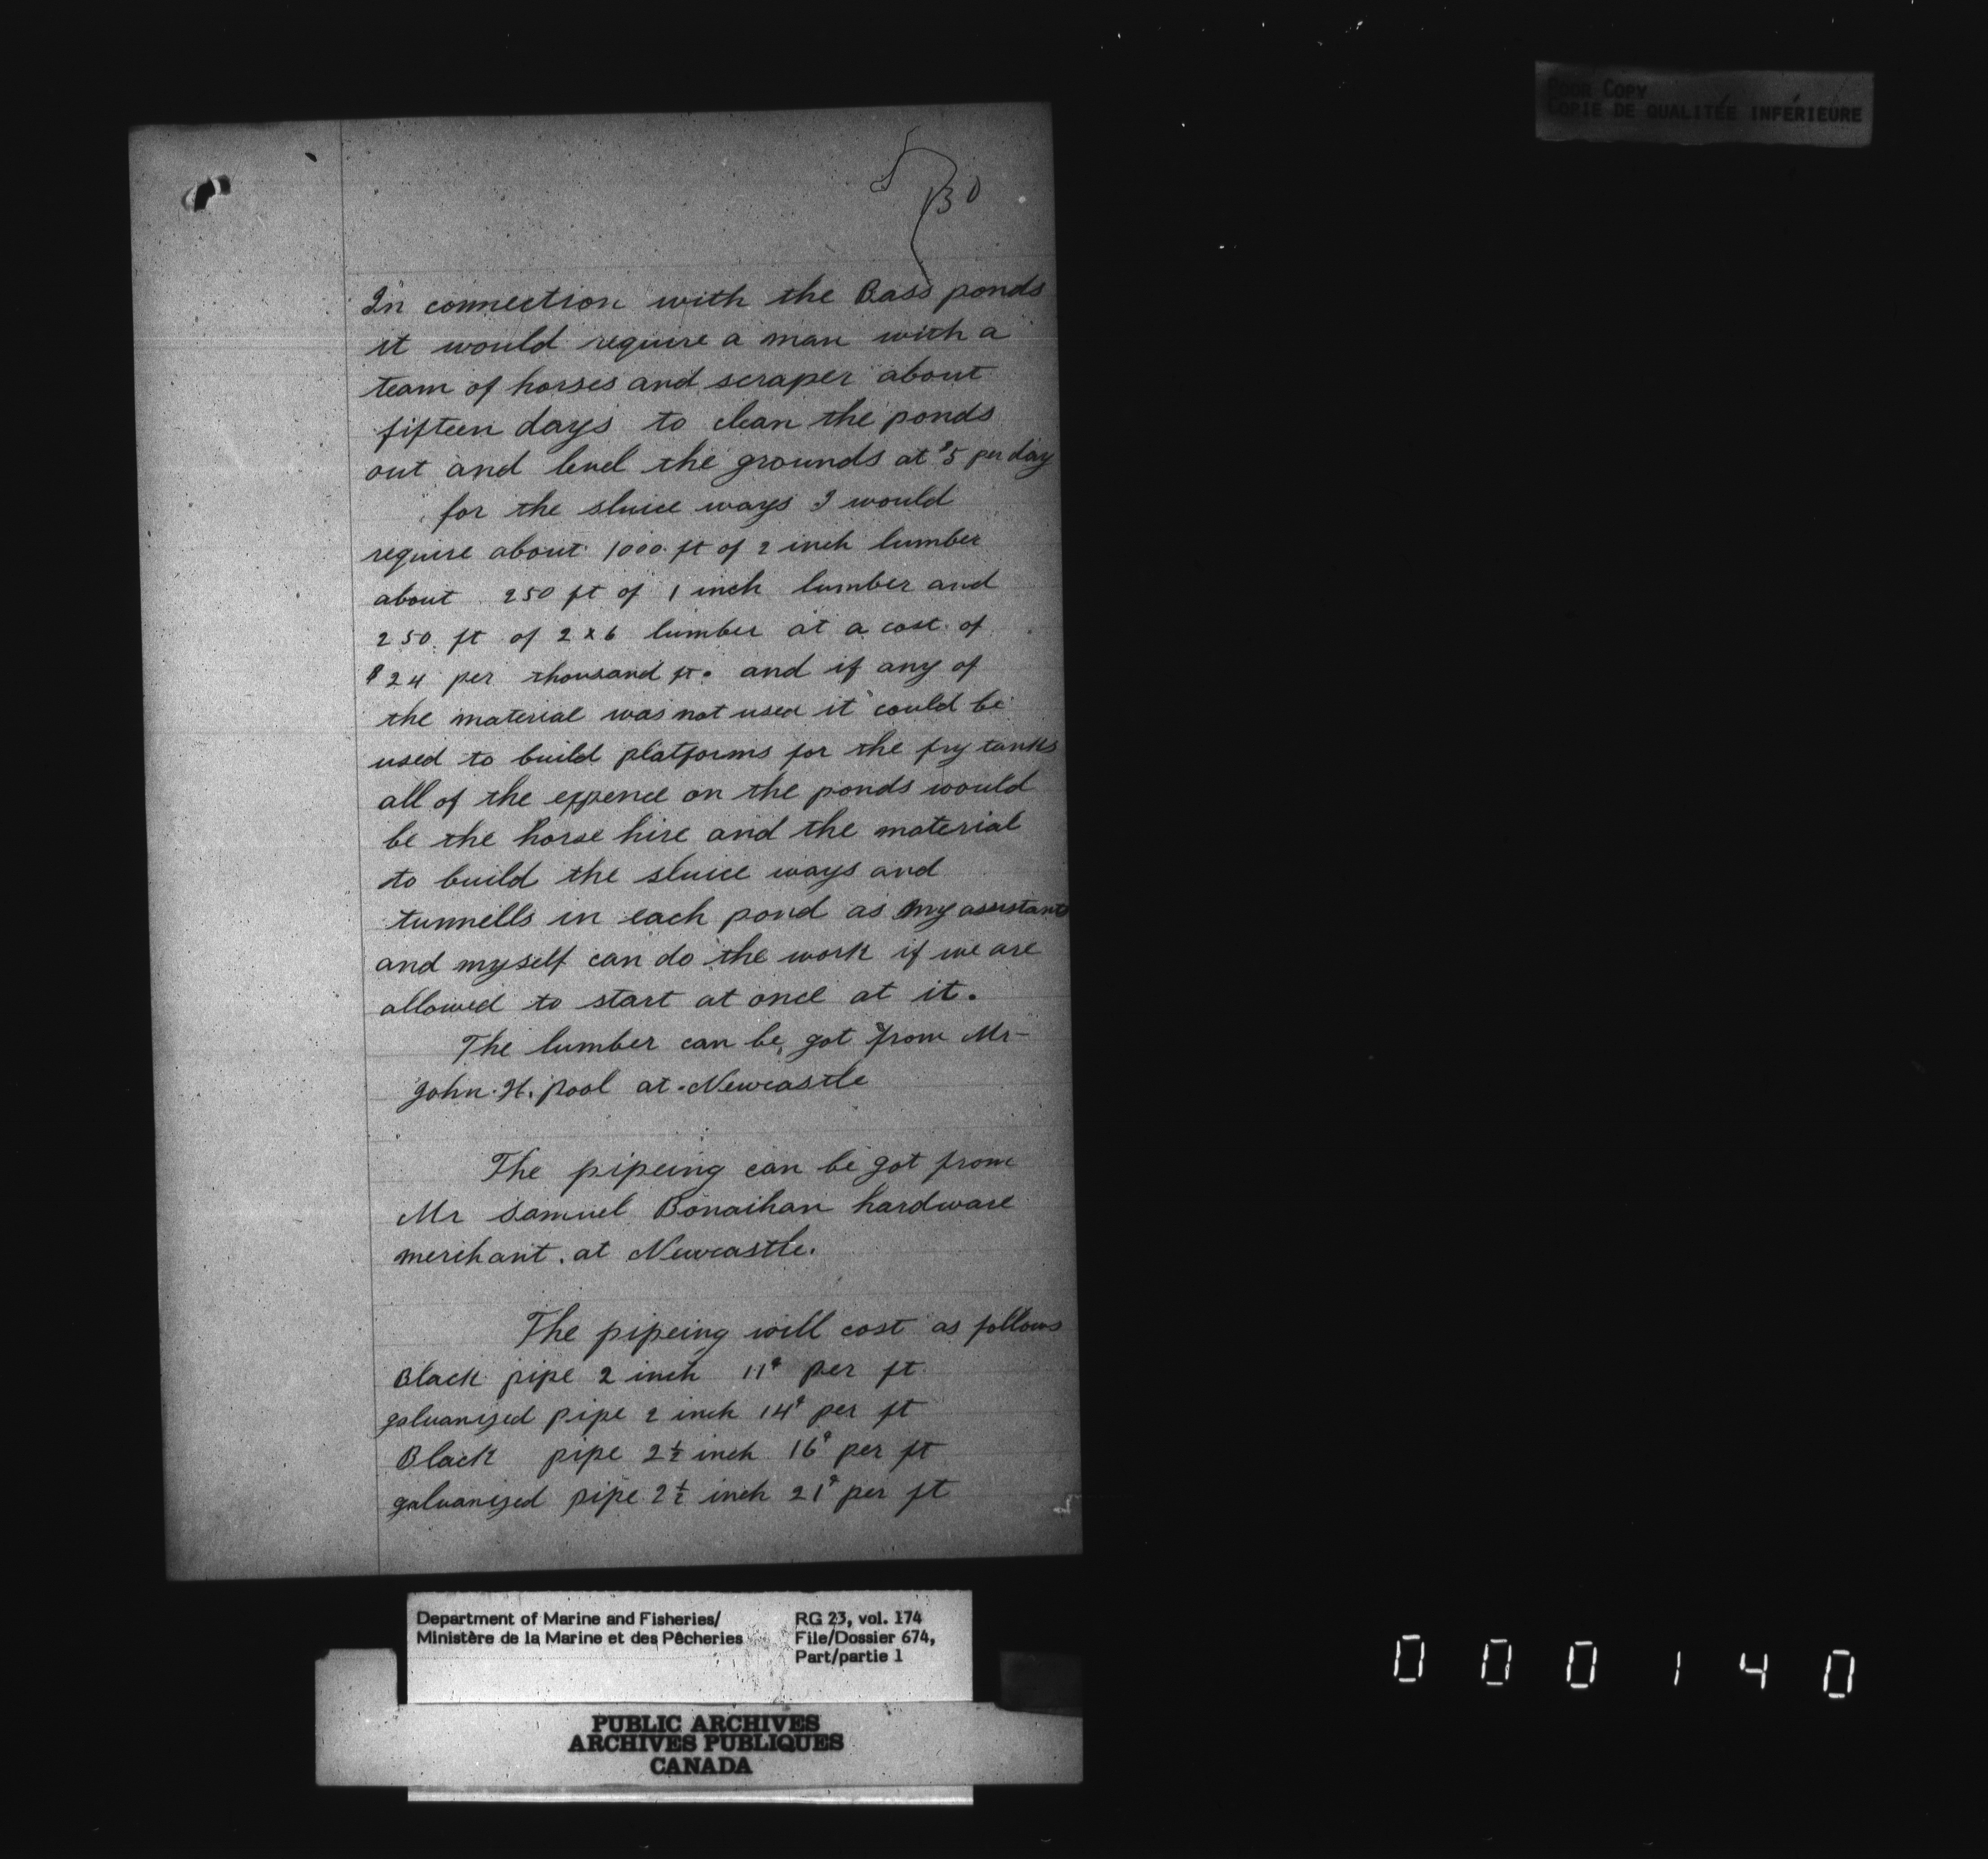 POOR COPY
COPIE DE QUALITÉE INFÉRIEURE
130
In connection with the Bass ponds
it would require a man with a
team of horses and scraper about
fifteen days to clean the ponds
out and level the grounds at $5 per day
for the sluice ways I would
require about 1000 ft of 2 inch lumber
about 250 ft of 1 inch lumber and
250 ft of 2 x 6 lumber at a cost of
$24 per thousand ft. and if any of
the material was not used it could be
used to build platforms for the fry tanks
all of the expence on the ponds would
be the horse hire and the material
to build the sluice ways and
tunnells in each pond as my assistant
and myself can do the work if we are
allowed to start at once at it.
The lumber can be got from Mr
John. H. Pool at Newcastle
The pipeing can be got from
Mr Samuel Bonathan hardware
merchant. at Newcastle.
The pipeing will cost as follows
Black pipe 2 inch 11¢ per ft
galvanized pipe 2 inch 14¢ per ft
Black pipe 2½ inch 16¢ per ft
galvanized pipe 2½ inch 21¢ per ft
Department of Marine and Fisheries/
Ministère de la Marine et des Pêcheries
RG 23, vol. 174
File/Dossier 674,
Part/partie 1
PUBLIC ARCHIVES
ARCHIVES PUBLIQUES
CANADA
000140